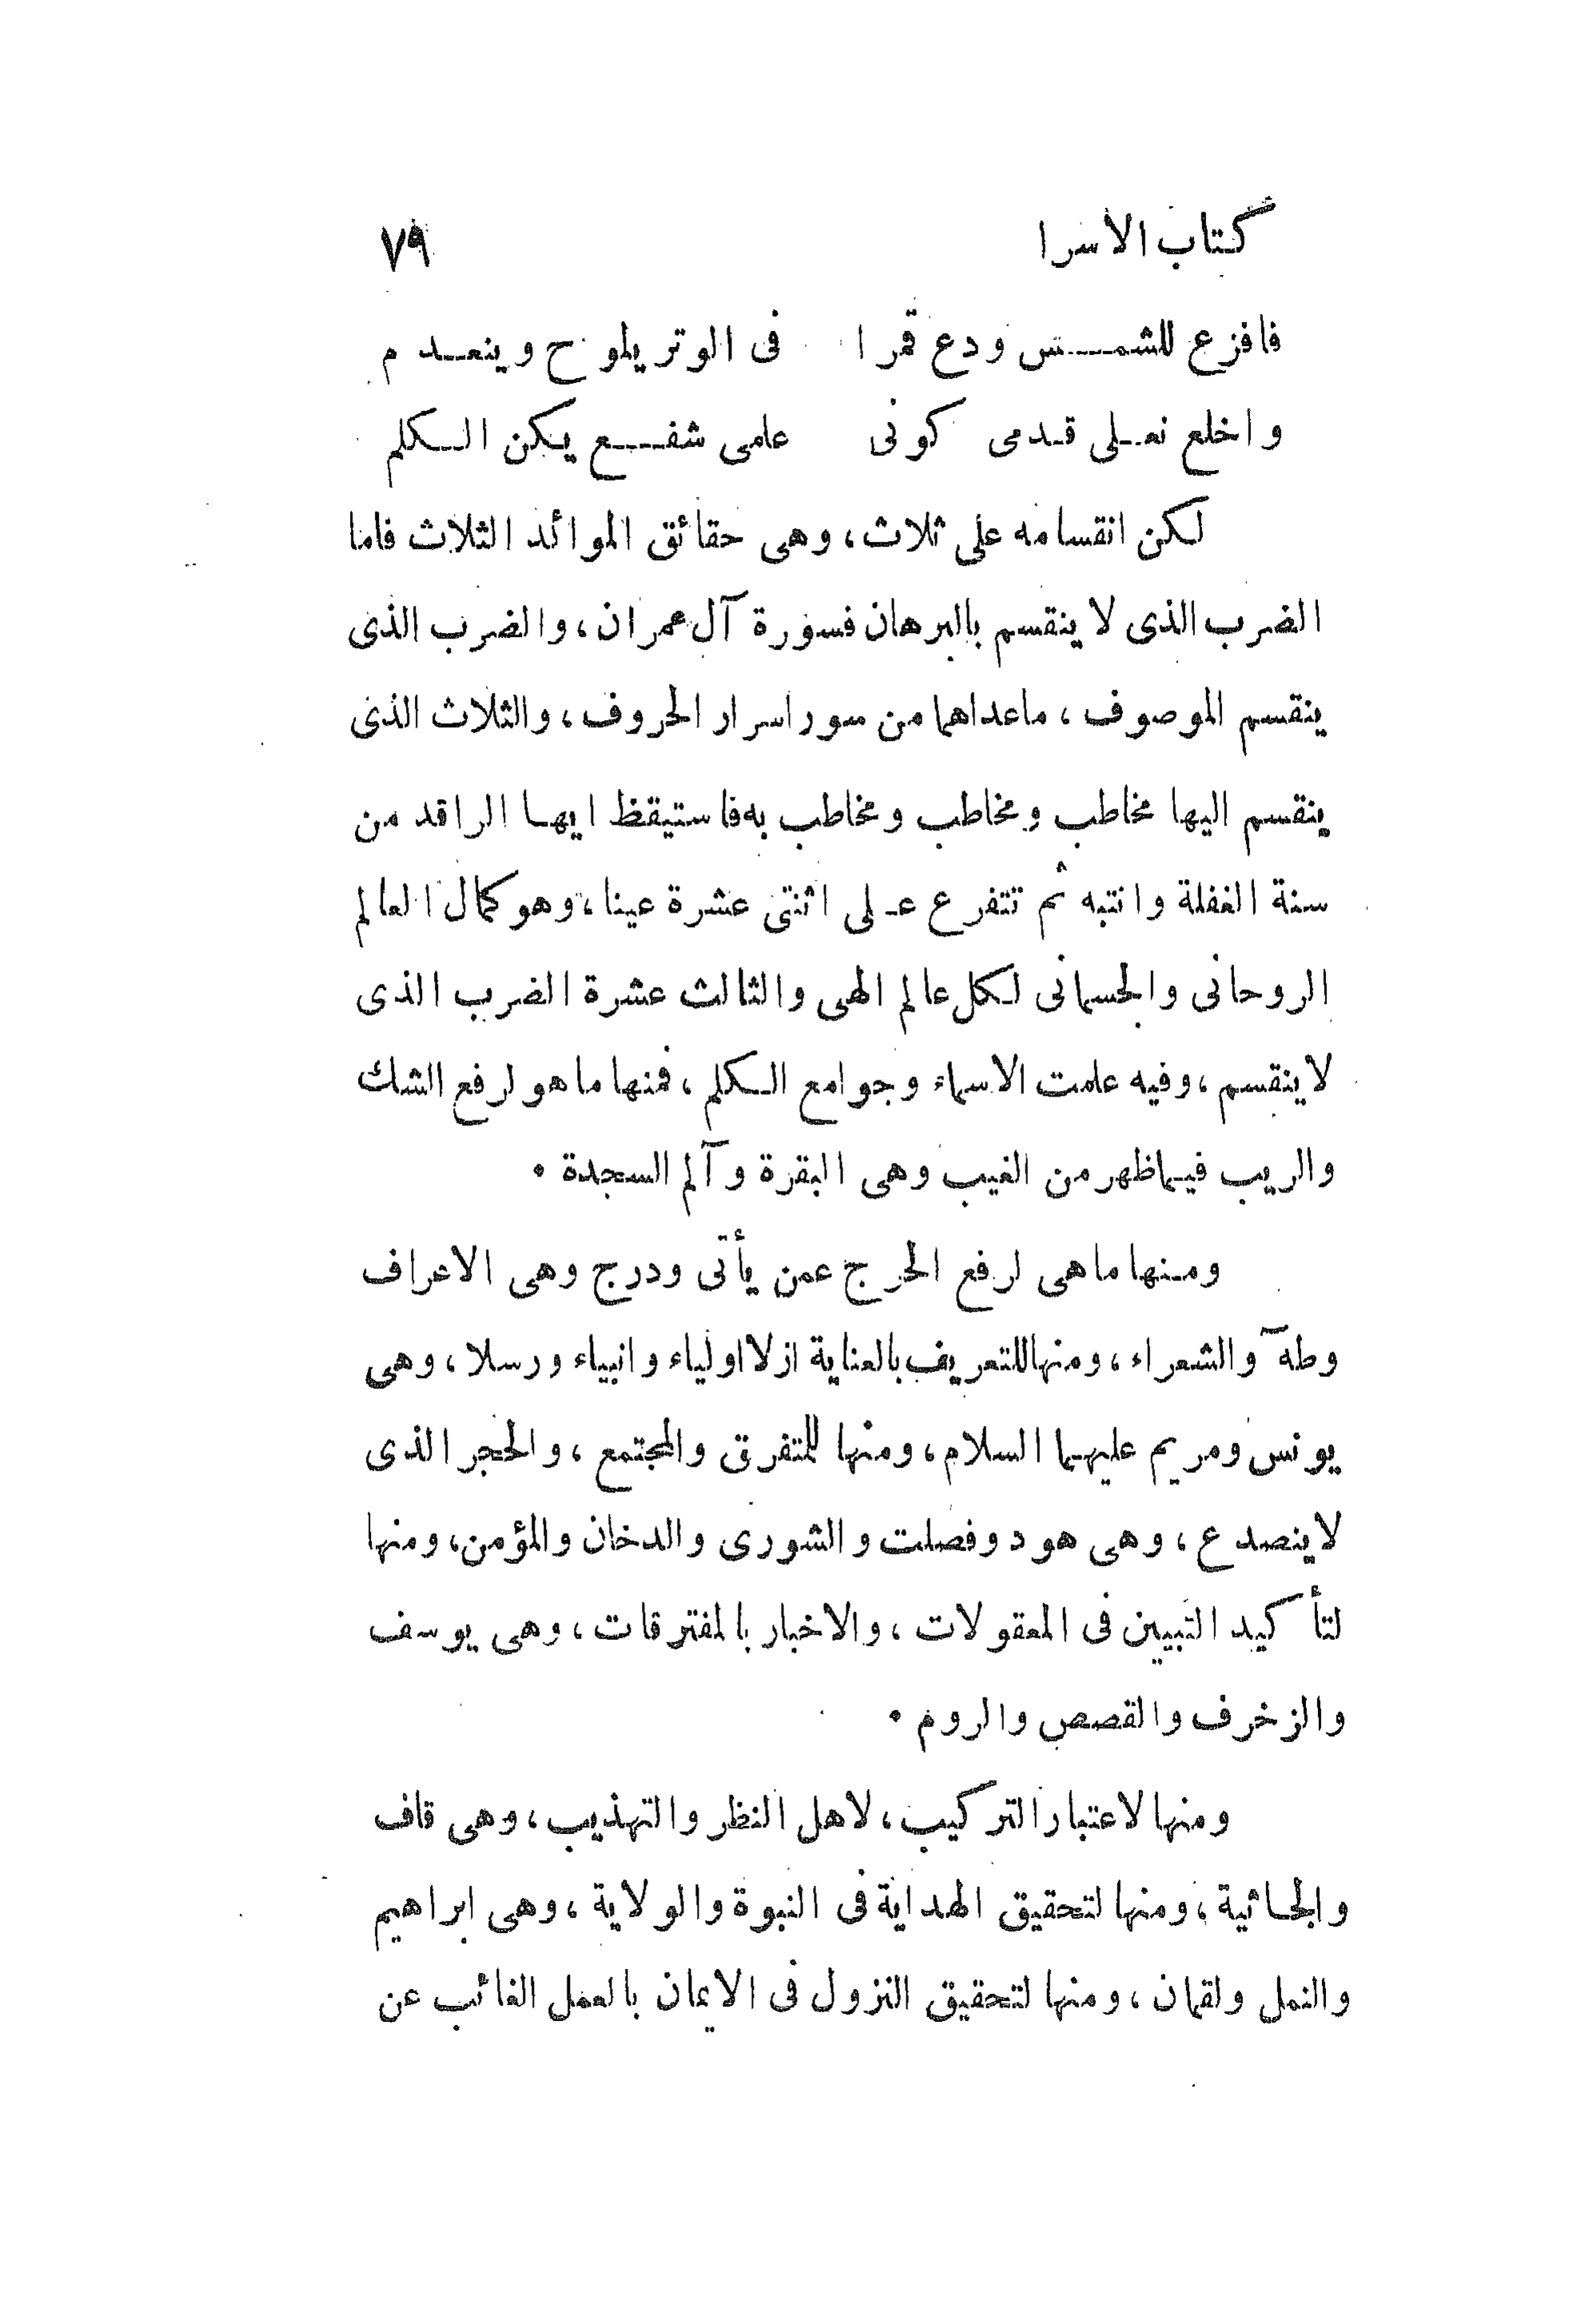 كتاب الاسرا ٧٩
فافزع للشمس ودع قمرا فى الوتر يلوح وينعدم
واخلع نعلى قدمى كونى علمى شفع يكن الكلم
لكن انقسامه على ثلاث، وهى حقائق الموائد الثلاث فاما
الضرب الذى لا ينقسم بالبرهان فسورة آل عمران، والضرب الذى
ينقسم الموصوف، ماعداهما من سور اسرار الحروف، والثلاث الذى
ينقسم اليها مخاطب ومخاطب ومخاطب به فاستيقظ ايها الراقد من
سنة الغفلة وانتبه ثم تتفرع على اثنتى عشرة عينا، وهو كمال العالم
الروحانى والجسمانى لكل عالم الهى والثالث عشرة الضرب الذى
لا ينقسم، وفيه علمت الاسماء وجوامع الكلم، فمنها ما هو لرفع الشك
والريب فيما ظهر من الغيب وهى البقرة وآلم السجدة .
ومنها ما هى لرفع الحرج عمن يأتى ودرج وهى الاعراف
وطهٓ والشعراء، ومنها للتعريف بالعناية ازلا اولياء وانبياء ورسلا، وهى
يونس ومريم عليهما السلام، ومنها للمتفرق والمجتمع، والحجر الذى
لا ينصدع، وهى هود وفصلت والشورى والدخان والمؤمن، ومنها
لتأكيد التبيين فى المعقولات، والاخبار بالمفترقات، وهى يوسف
والزخرف والقصص والروم .
ومنها لاعتبار التركيب، لاهل النظر والتهذيب، وهى قاف
والجاثية، ومنها لتحقيق الهداية فى النبوة والولاية، وهى ابراهيم
والنمل ولقمان، ومنها لتحقيق النزول فى الايمان بالعمل الغائب عن